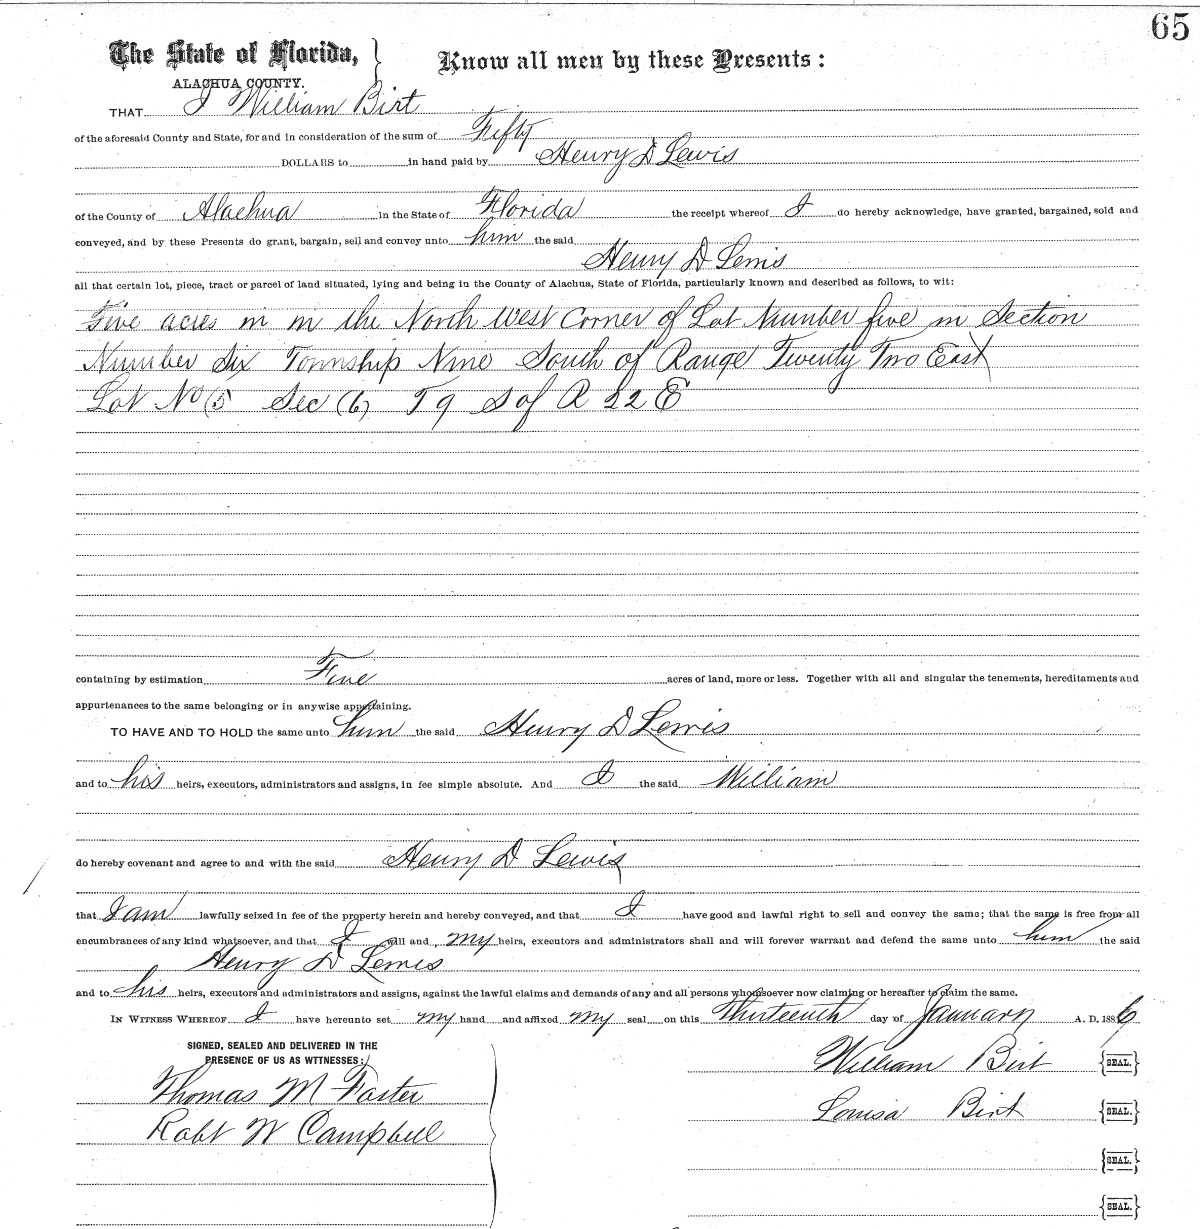 65
The State of Florida, } Know all men by these Presents:
ALACHUA COUNTY.
THAT I William Birt
of the aforesaid County and State, for and in consideration of the sum of Fifty
DOLLARS to in hand paid by Henry D Lewis
of the County of Alachua in the State of Florida the receipt whereof I do hereby acknowledge, have granted, bargained, sold and
conveyed, and by these Presents do grant, bargain, sell and convey unto him the said
Henry D Lewis
all that certain lot, piece, tract or parcel of land situated, lying and being in the County of Alachua, State of Florida, particularly known and described as follows, to wit:
Five acres in in the North West Corner of Lot Number five in Section
Number Six Township Nine South of Range Twenty Two East
Lot No (5 Sec (6) T 9 S of R 22 E
containing by estimation Five acres of land, more or less. Together with all and singular the tenements, hereditaments and
appurtenances to the same belonging or in anywise appertaining.
TO HAVE AND TO HOLD the same unto him the said Henry D Lewis
and to his heirs, executors, administrators and assigns, in fee simple absolute. And I the said William
do hereby covenant and agree to and with the said Henry D Lewis
that I am lawfully seized in fee of the property herein and hereby conveyed, and that I have good and lawful right to sell and convey the same; that the same is free from all
encumbrances of any kind whatsoever, and that I will and my heirs, executors and administrators shall and will forever warrant and defend the same unto him the said
Henry D Lewis
and to his heirs, executors and administrators and assigns, against the lawful claims and demands of any and all persons whomsoever now claiming or hereafter to claim the same.
IN WITNESS WHEREOF I have hereunto set my hand and affixed my seal on this thirteenth day of January A. D. 1886
SIGNED, SEALED AND DELIVERED IN THE
PRESENCE OF US AS WITNESSES:
William Birt {SEAL.}
Thomas M Foster
Louisa Birt {SEAL.}
Robt W Campbell
{SEAL.}
{SEAL.}